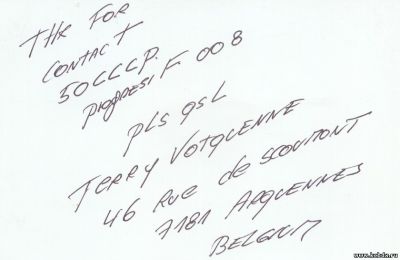 THK FOR
CONTACT
50CCCP.
PROGRESI F 008
PLS QSL
TERRY VOTQUENNE
46 RUE de SCOUMONT
7181 ARQUENNES
BELGIUM
www.kubdx.ru